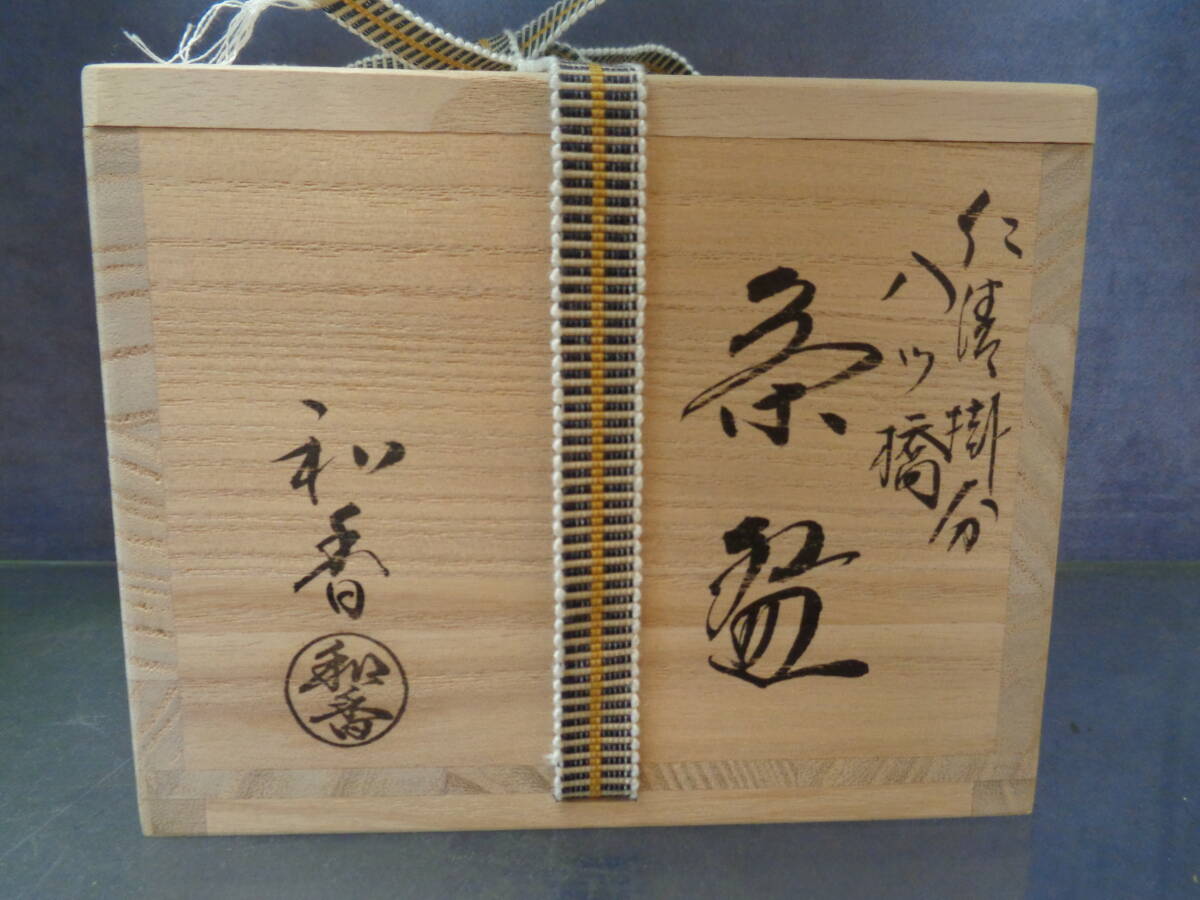 仁清掛分
八ツ橋
茶盌
和香
和香